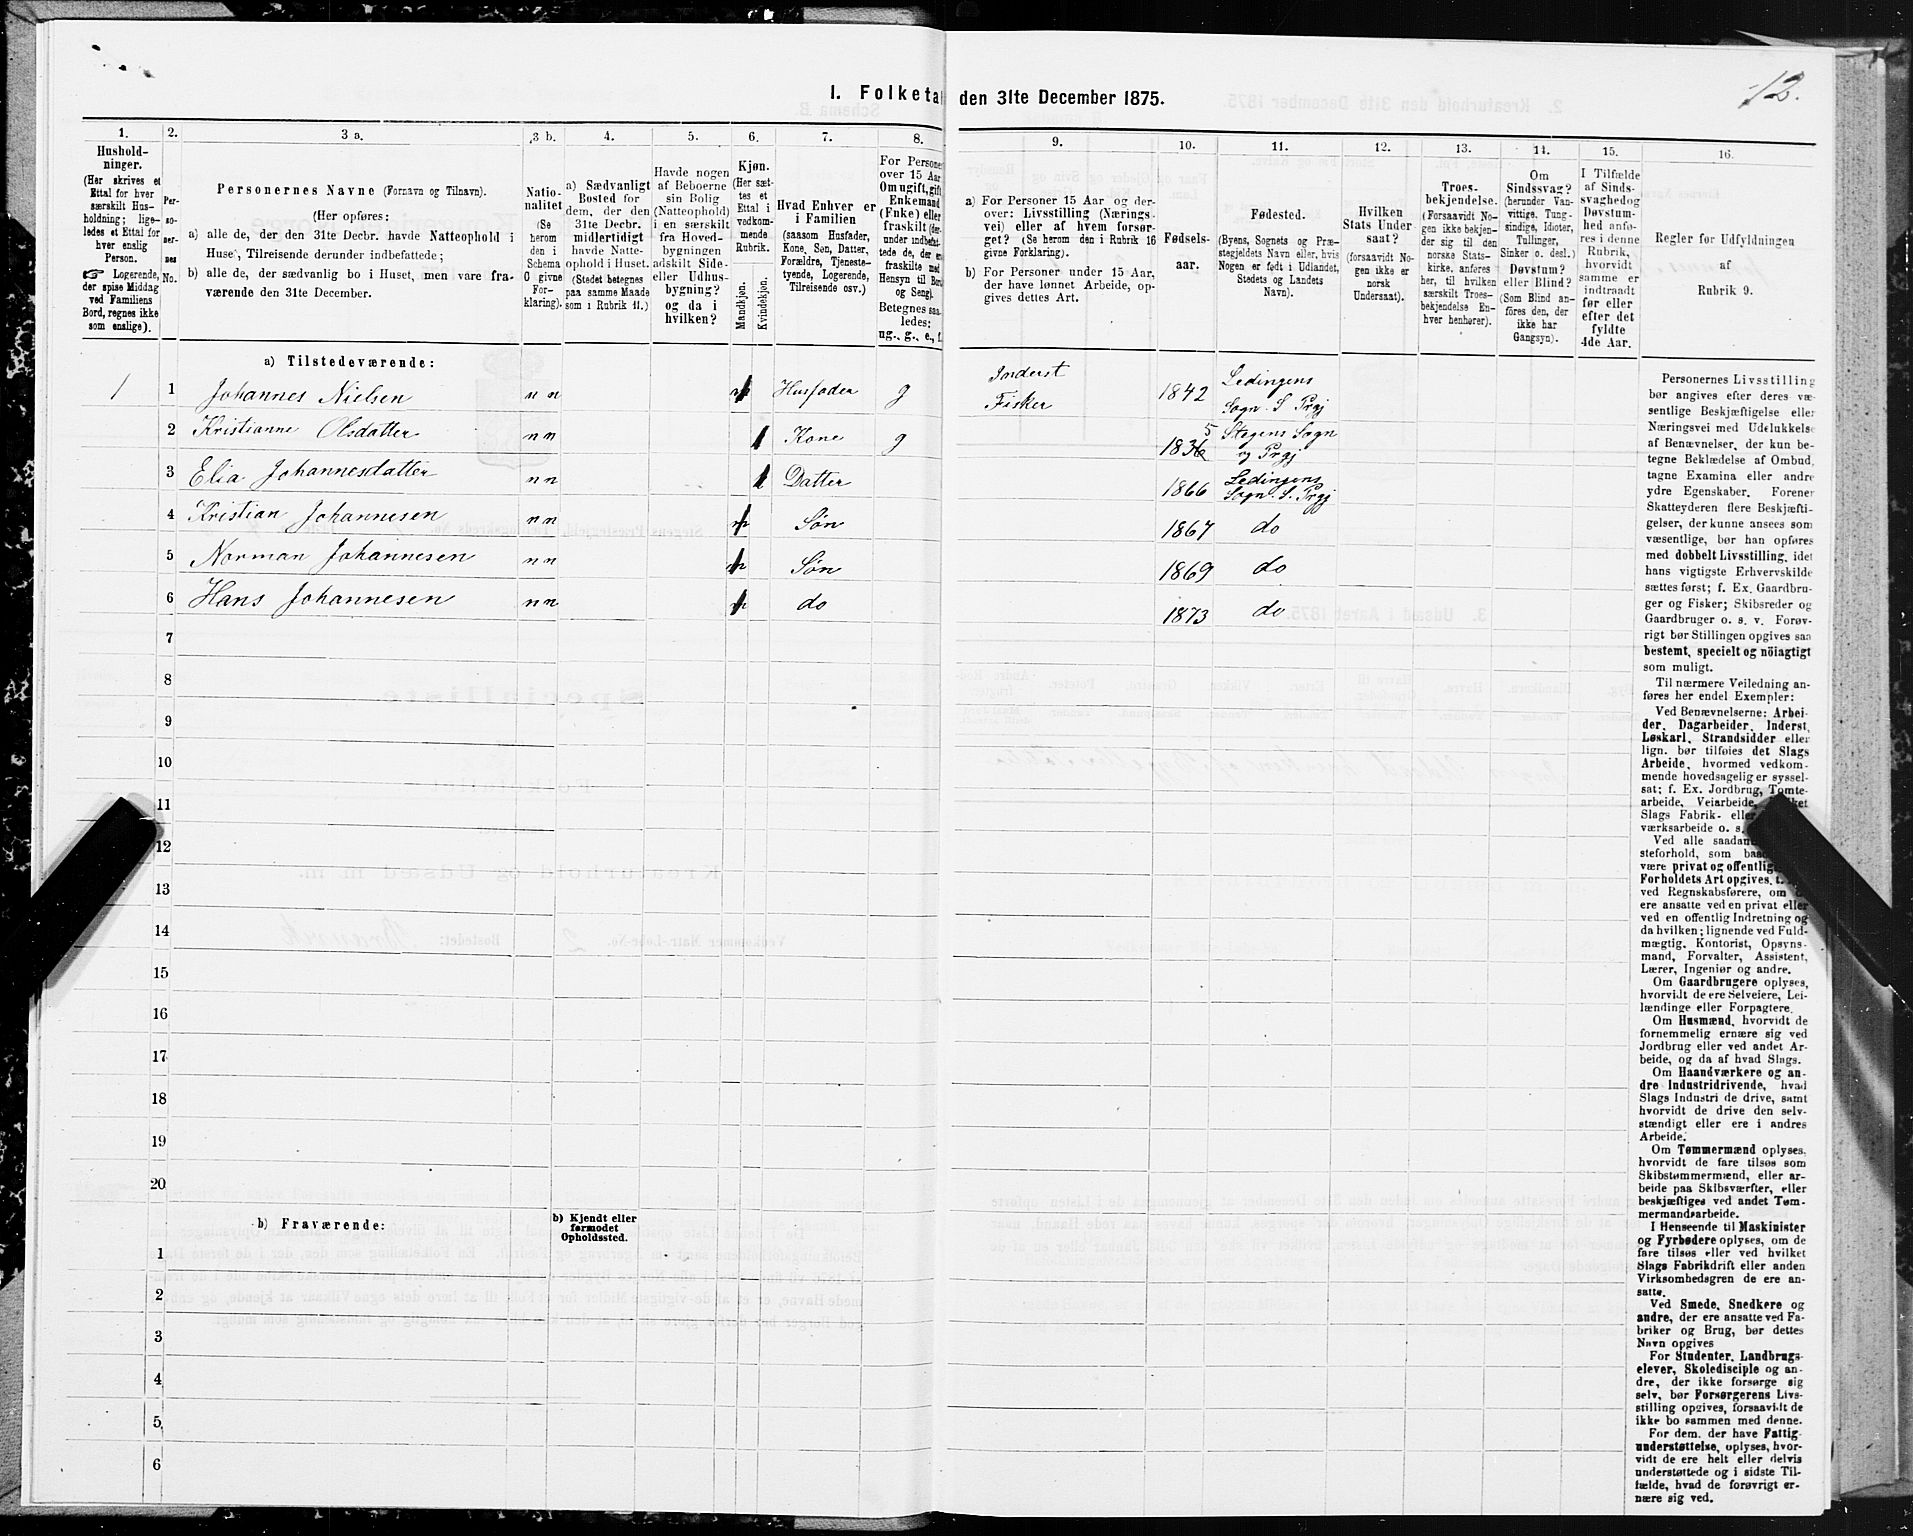 I. Folketal den 31te December 1875.
12.
1.
Husholdninger.
(Her skrives et
Ettal for hver
særskilt Husholdning;
ligeledes et Ettal for
hver enslig
Person.
☞ Logerende,
der spise Middag
ved Familiens
Bord, regnes ikke
som enslige).
2.
Personernes
No.
3 a.
Personernes Navne (Fornavn og Tilnavn).
(Her opføres:
a) alle de, der den 31te Decbr. havde Natteophold i
Huset, Tilreisende derunder indbefattede;
b) alle de, der sædvanlig bo i Huset, men vare fraværende
den 31te December.
3 b.
Nationalitet
(Se
herom
den i
Schema
O givne
Forklaring).
4.
a) Sædvanligt
Bosted for
dem, der den
31te Decbr.
midlertidigt
havde Natteophold
i Huset.
(Stedet betegnes
paa samme Maade
som i Rubrik 11.)
5.
Havde nogen
af Beboerne
sin Bolig
(Natteophold)
i en særskilt
fra Hovedbygningen
adskilt Side-
eller Udhusbygning?
og da i
hvilken?
6.
Kjøn.
(Her sættes
et
Ettal i
vedkommende
Rubrik.
Mandkjøn.
Kvindekjøn.
7.
Hvad Enhver er
i Familien
(saasom Husfader,
Kone, Søn, Datter,
Forældre, Tjenestetyende,
Logerende,
Tilreisende osv.)
8.
For Personer
over 15 Aar:
Om ugift, gift,
Enkemand
(Enke) eller
fraskilt
ug., g., e., f.
9.
a) For Personer 15 Aar og derover:
Livsstilling (Næringsvei)
eller af hvem forsørget?
(Se herom den i Rubrik 16
givne Forklaring).
b) For Personer under 15 Aar,
der have lønnet Arbeide, opgives
dettes Art.
10.
Fødselsaar.
11.
Fødested.
(Byens, Sognets og Præstegjeldets
Navn eller, hvis
Nogen er født i Udlandet,
Stedets og Landets
Navn).
12.
Hvilken
Stats Undersaat?
(forsaavidt Nogen
ikke er
norsk
Undersaat).
13.
Troesbekjendelse.
(Forsaavidt Nogen
ikke bekjender
sig til den
norske Statskirke,
anføres
her, til hvilken
særskilt Troesbekjendelse
Enhver
henhører).
14.
Om
Sindssvag?
(herunder Vanvittige,
Tungsindige,
Idioter,
Tullinger,
Sinker o. desl.)
Døvstum?
eller Blind?
(Som Blind anføres
den, der
ikke har
Gangsyn).
15.
I Tilfælde
af Sindssvaghed
og
Døvstumhed
anføres
i denne
Rubrik,
hvorvidt
samme er
indtraadt
før eller
efter det
fyldte
4de Aar.
16.
Regler før Udfyldningen
af
Rubrik 9.
a) Tilstedeværende:
1 1 Johannes Nielsen n n 1 Husfader g Inderst Fisker 1842 Lødingens Sogn S Prgj
2 Kristianne Olsdatter n n 1 Kone g 1836 5 Stegens Sogn og Prgj
3 Elia Johannesdatter n n 1 Datter 1866 Lødingens Sogn S. Prgj
4 Kristian Johannesen n n 1 Søn 1867 do
5 Norman Johannesen n n 1 Søn 1869 do
6 Hans Johannesen n n 1 do 1873 do
7
8
9
10
11
12
13
14
15
16
17
18
19
20
b) Fraværende:
b) Kjendt eller
formodet
Opholdssted.
1
2
3
4
5
6
Personernes Livsstilling
bør angives efter deres væsentlige
Beskjæftigelse eller
Næringsvei med Udelukkelse
af Benævnelser, der kun betegne
Beklædelse af Ombud,
tagne Examina eller andre
ydre Egenskaber. Forener
Skatteyderen flere Beskjæftigelser,
der kunne ansees som
væsentlige, bør han opføres
med dobbelt Livsstilling, idet
hans vigtigste Erhvervskilde
sættes først; f. Ex. Gaardbruger
og Fisker; Skibsreder og
Gaardbruger o. s. v. Forøvrigt
bør Stillingen opgives saa
bestemt, specielt og nöiagtigt
som muligt.
Til nærmere Veiledning anføres
her endel Exempler:
Ved Benævnelserne: Arbeider,
Dagarbeider, Inderst,
Løskarl, Strandsidder eller
lign. bør tilføies det Slags
Arbeide, hvormed vedkommende
hovedsagelig er sysselsat;
f. Ex. Jordbrug, Tomtearbeide,
Veiarbeide,
Slags Fabrik- eller
værksarbeide o. s.
Ved alle
være privat og
Forholdets Art opgives,
ved Regnskabsførere, om
ere ansatte ved en privat eller
ved en offentlig Indretning og
da hvilken; lignende ved Fuldmægtig,
Kontorist, Opsynsmand,
Forvalter, Assistent,
Lærer, Ingeniør og andre.
Om Gaardbrugere oplyses,
hvorvidt de ere Selveiere, Leilændinge
eller Forpagtere.
Om Husmænd, hvorvidt de
fornemmelig ernære sig ved
Jordbrug eller ved andet Arbeide,
og da af hvad Slags.
Om Haandværkere og andre
Industridrivende, hvad
Slags Industri de drive, samt
hvorvidt de drive den selvstændigt
eller ere i andres
Arbeide.
Om Tømmermænd oplyses,
hvorvidt de fare tilsøs som
Skibstømmermænd, eller arbeide
paa Skibsværfter, eller
beskjæftiges ved andet Tømmermandsarbeide.
I Henseende til Maskinister
og Fyrbødere oplyses, om de
fare tilsøs eller ved hvilket
Slags Fabrikdrift eller anden
Virksomhedsgren de ere ansatte.
Ved Smede, Snedkere og
andre, der ere ansatte ved Fabriker
og Brug, bør dettes
Navn opgives
For Studenter, Landbrugselever,
Skoledisciple og andre,
der ikke forsørge sig
selv, bør Forsørgerens Livsstilling
opgives, forsaavidt de
ikke bo sammen med denne.
For dem, der have Fattigunderstøttelse,
oplyses, hvorvidt
de ere helt eller delvis
understøttede og i sidste Tilfælde,
hvad de forøvrigt ernære
sig ved.